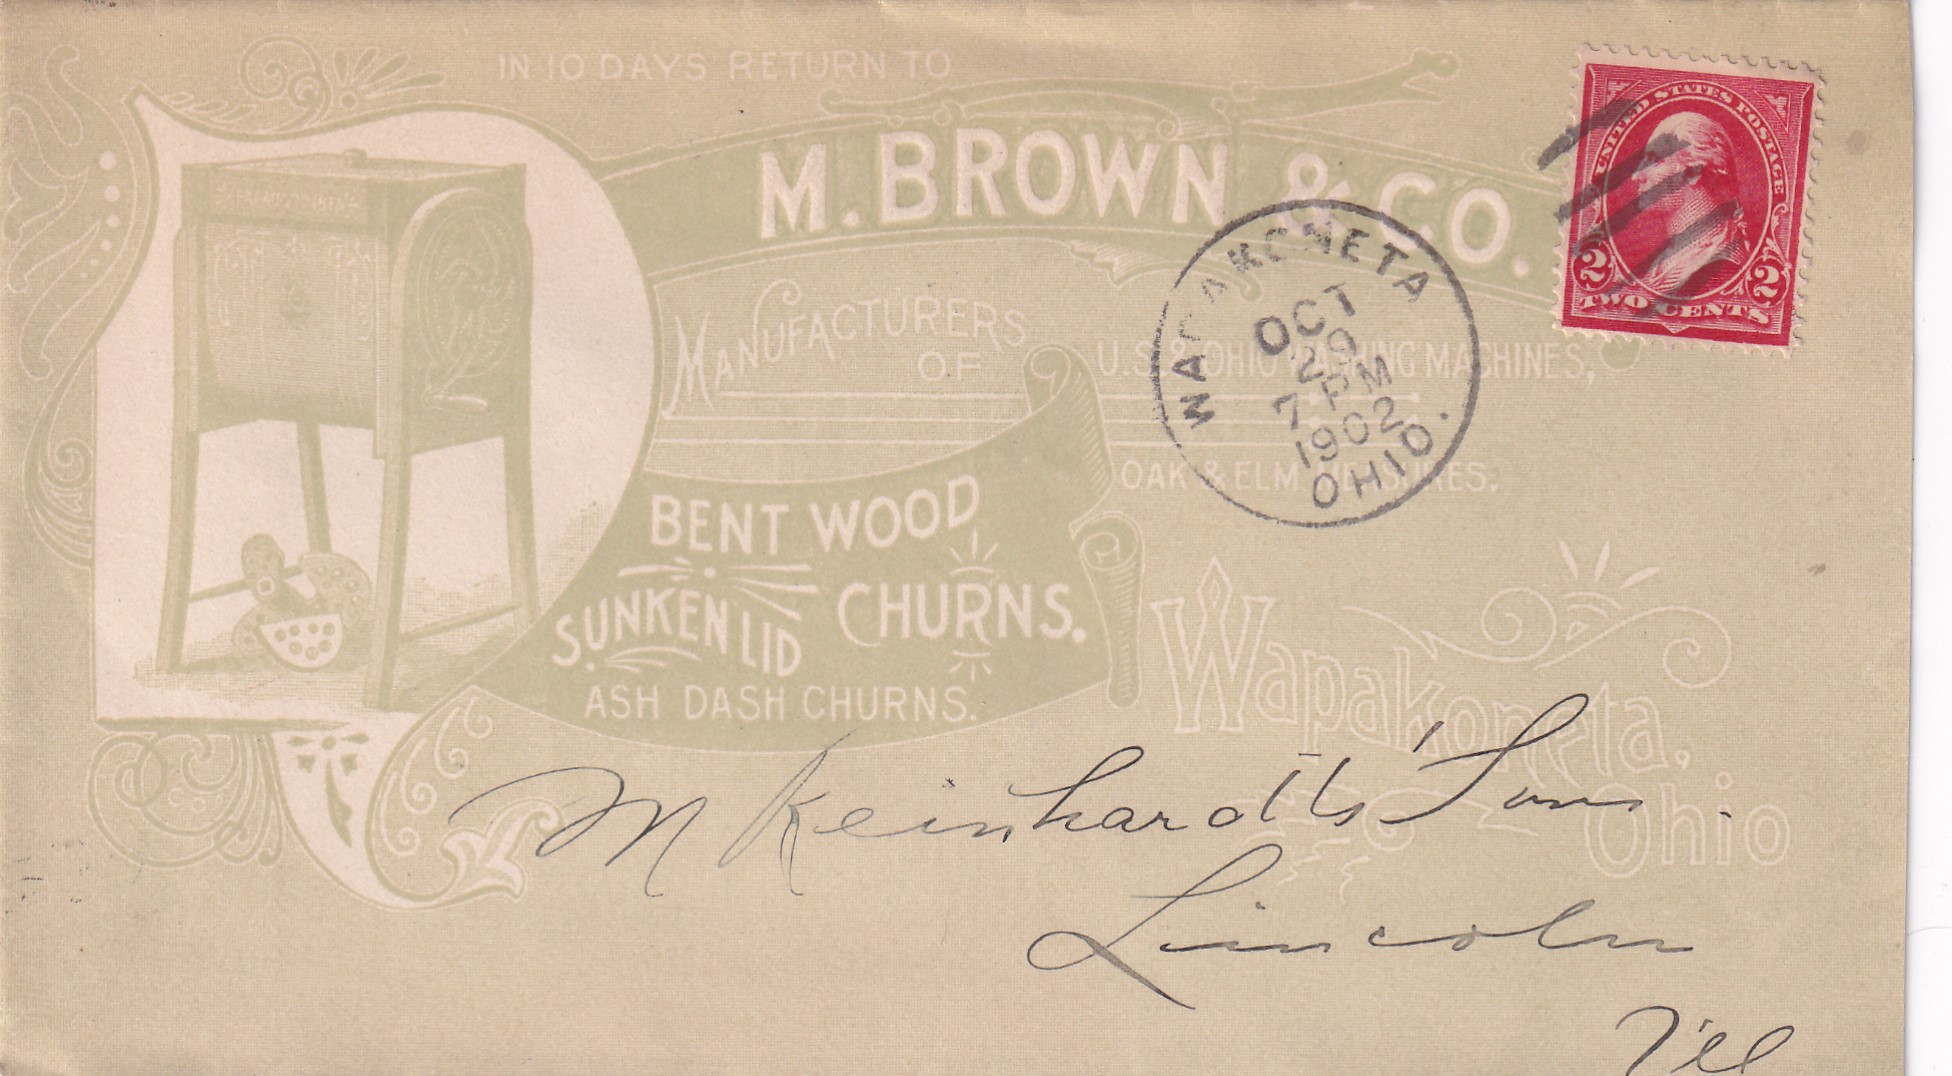 IN 10 DAYS RETURN TO
M. BROWN & CO.
MANUFACTURERS
OF
U.S. & OHIO WASHING MACHINES,
BENT WOOD
SUNKEN LID CHURNS.
ASH DASH CHURNS.
OAK & ELM MEASURES.
Wapakoneta,
Ohio
WAPAKONETA
OCT
29
7 PM
1902
OHIO.
UNITED STATES POSTAGE
2 2
TWO CENTS
M Reinhardts' Sons.
Lincoln
Ill